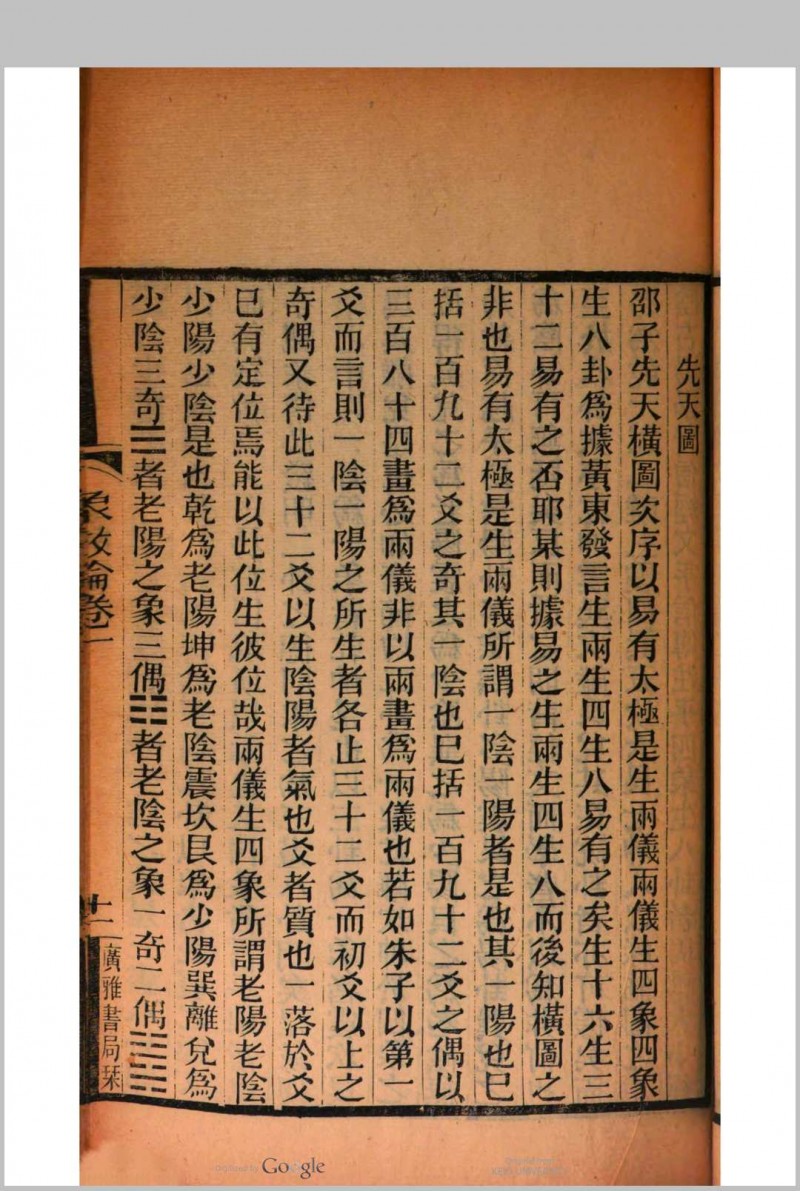 先天圖
邵子先天橫圖次序以易有太極是生兩儀兩儀生四象四象
生八卦爲據黃東發言生兩生四生八易有之矣生十六生三
十二易有之否耶某則據易之生兩生四生八而後知橫圖之
非也易有太極是生兩儀所謂一陰一陽者是也其一陽也已
括一百九十二爻之奇其一陰也已括一百九十二爻之偶以
三百八十四畫爲兩儀非以兩畫爲兩儀也若如朱子以第一
爻而言則一陰一陽之所生者各止三十二爻而初爻以上之
奇偶又待此三十二爻以生陰陽者氣也爻者質也一落於爻
已有定位焉能以此位生彼位哉兩儀生四象所謂老陽老陰
少陽少陰是也乾爲老陽坤爲老陰震坎艮爲少陽巽離兌爲
少陰三奇☰者老陽之象三偶☷者老陰之象一奇二偶☳☵
象數論卷一
十一
廣雅書局栞
Digitized by Google